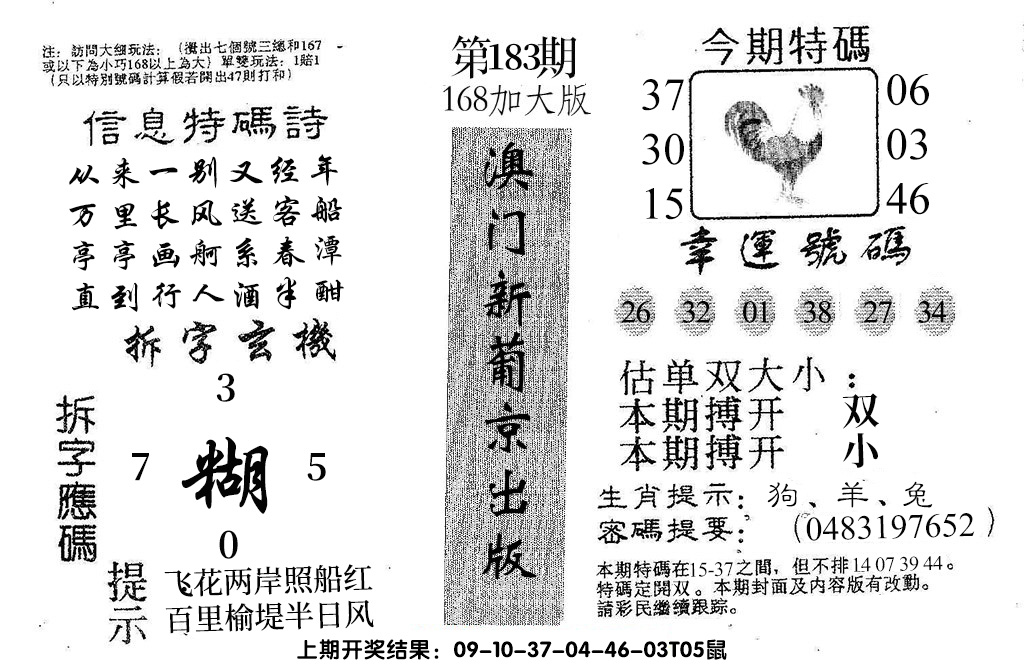 注：訪問大细玩法：（攪出七個號三總和167
或以下為小巧168以上為大）單雙玩法：1賠1
（只以特別號碼計算假若開出47則打和）
信息特碼詩
从来一别又经年
万里长风送客船
亭亭画舸系春潭
直到行人酒半酣
拆字玄機
3
拆字應碼
7 糊 5
0
提示
飞花两岸照船红
百里榆堤半日风
第183期
168加大版
澳门新葡京出版
今期特碼
37 06
30 03
15 46
幸運號碼
26 32 01 38 27 34
估单双大小：
本期搏开 双
本期搏开 小
生肖提示：狗、羊、兔
密碼提要：（0483197652）
本期特碼在15-37之間，但不排14 07 39 44。
特碼定開双。本期封面及内容版有改動。
請彩民繼續跟踪。
上期开奖结果：09-10-37-04-46-03T05鼠